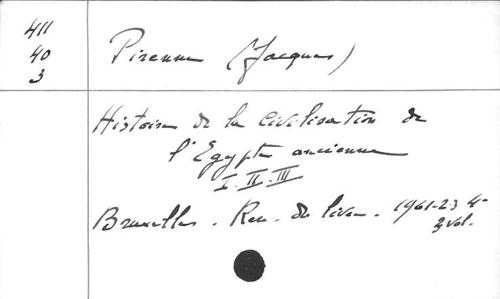 411
40
3
Pirenne (Jacques)
Histoire de la civilisation de
l'Egypte ancienne
I. II. III
Bruxelles. Ren. du livre. 1961-23 4°
3 vol.